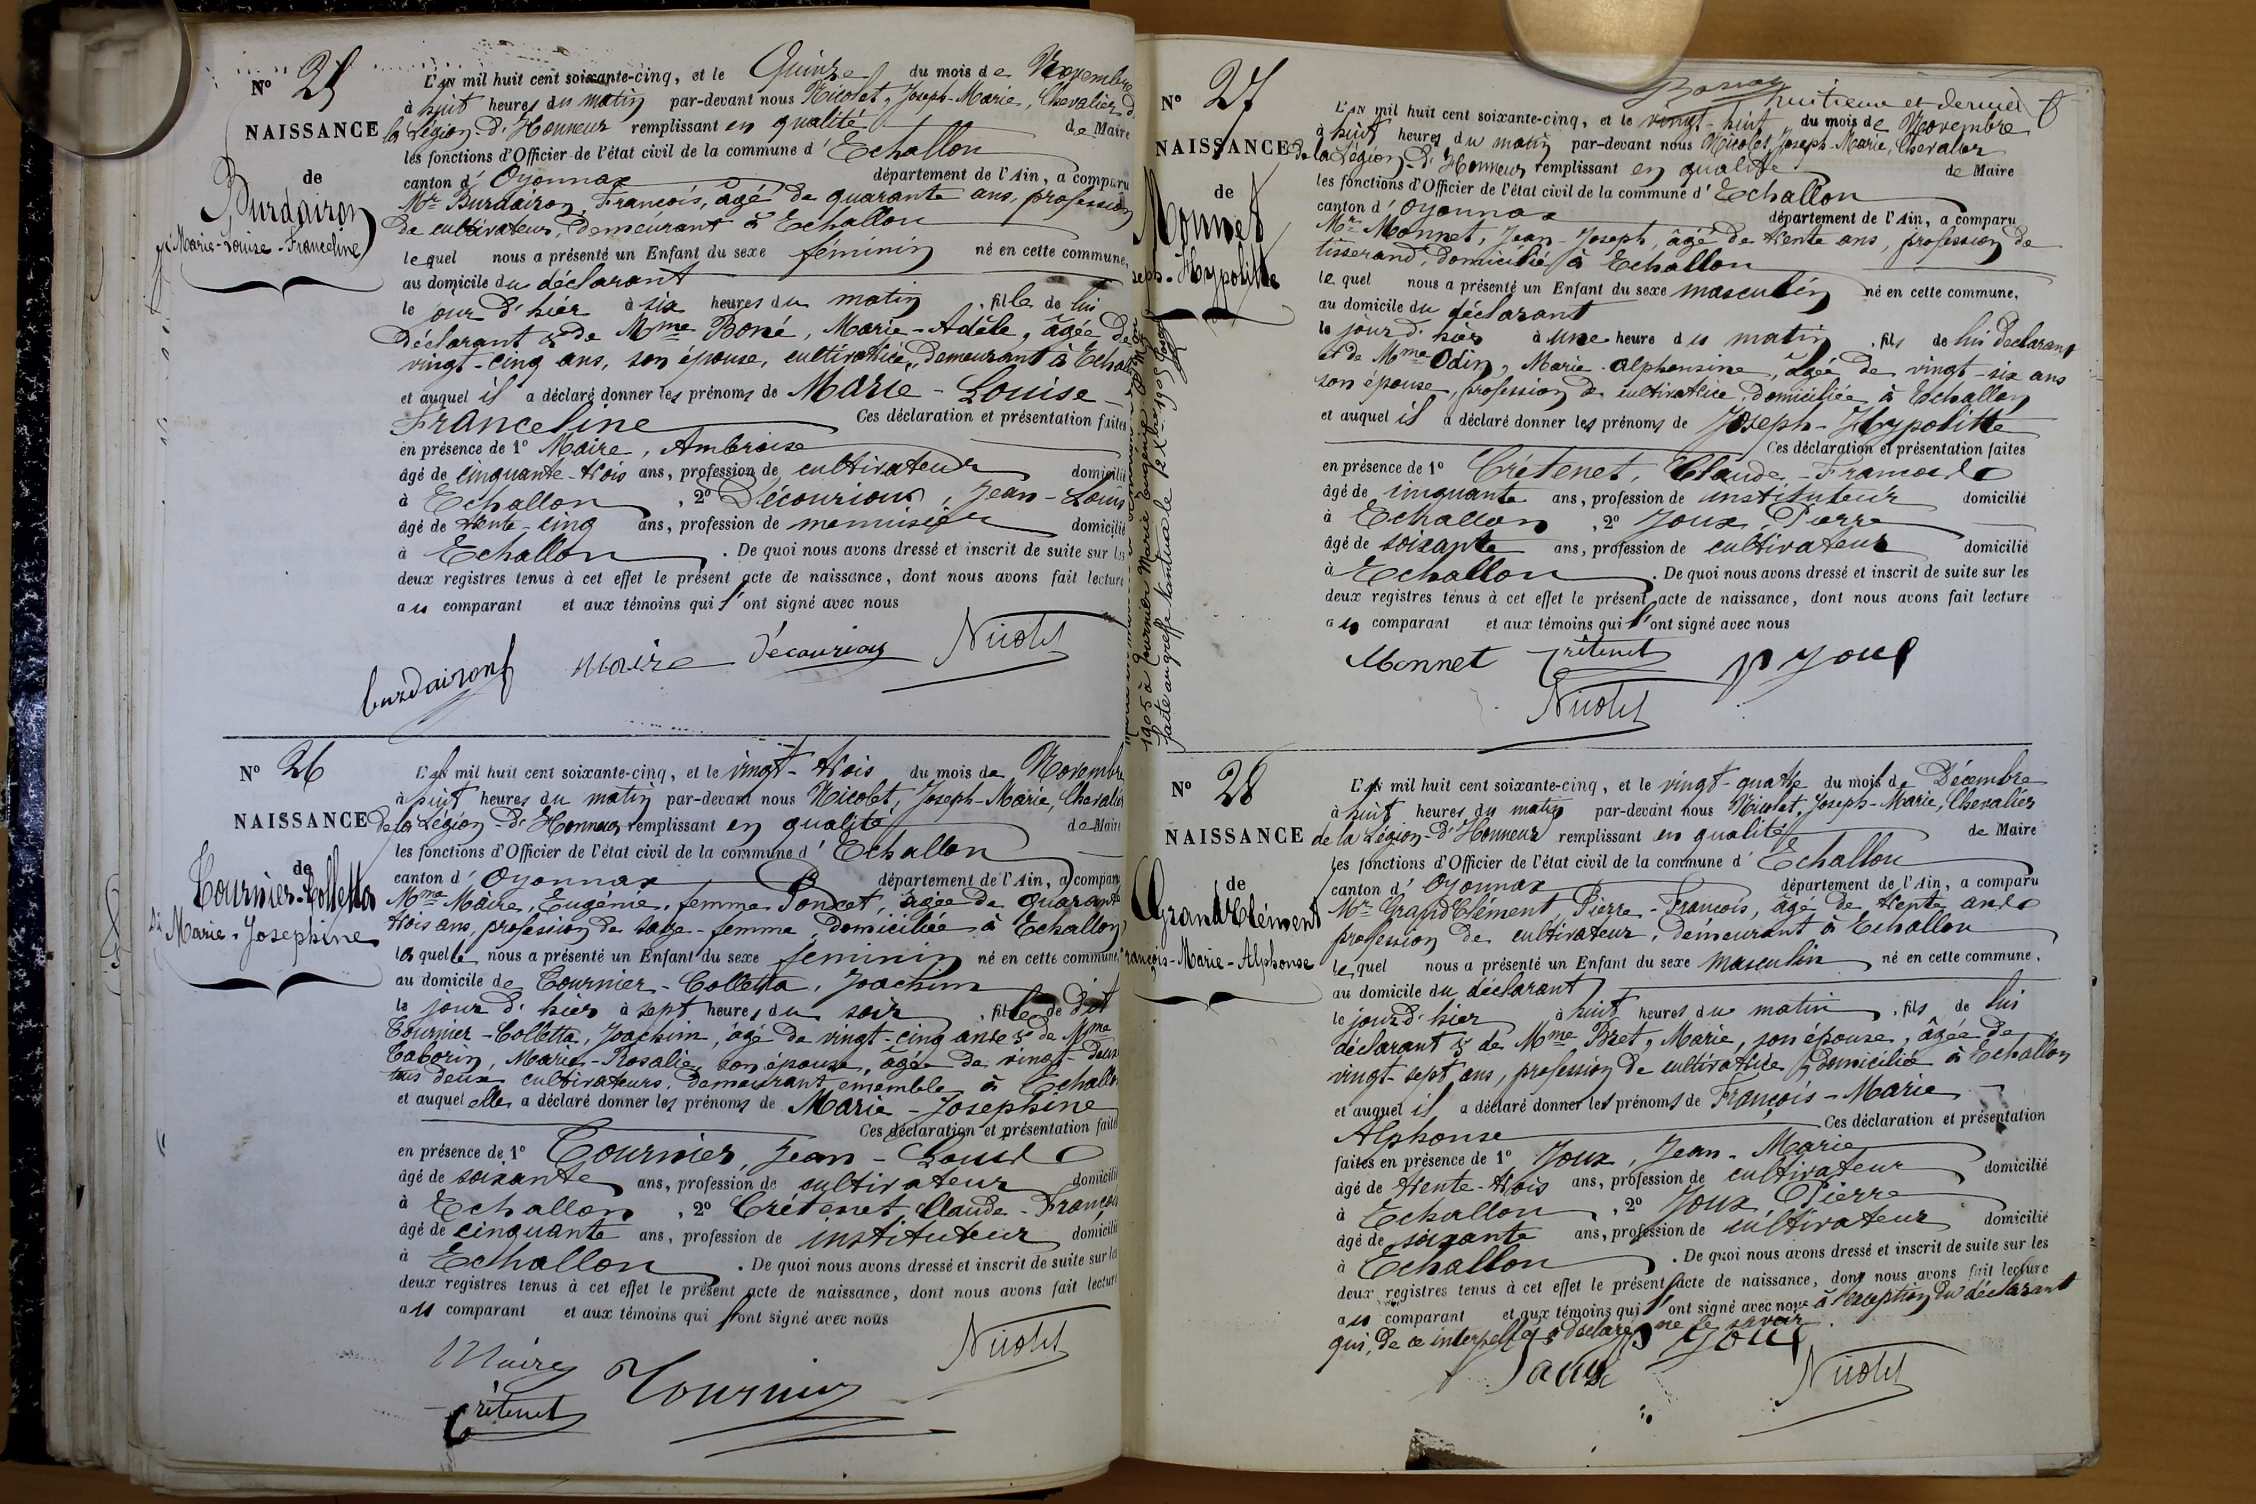 N° 25
L'AN mil huit cent soixante-cinq, et le Quinze du mois de Novembre
à huit heures du matin par-devant nous Nicolet, Joseph-Marie, Chevalier de
NAISSANCE
la Légion d'Honneur remplissant en qualité de Maire
les fonctions d'Officier de l'état civil de la commune d'Echallon
de
canton d'Oyonnax département de l'Ain, a comparu
Burdairon
Marie-Louise-Franceline
Mr Burdairon, François, âgé de quarante ans, profession
de cultivateur, demeurant à Echallon
lequel nous a présenté un Enfant du sexe féminin né en cette commune,
au domicile du déclarant
le jour d'hier à six heures du matin, fille de lui
déclarant & de Mme Boné, Marie-Adèle, âgée de
vingt-cinq ans, son épouse, cultivatrice, demeurant à Echallon
et auquel il a déclaré donner les prénoms de Marie-Louise-
Franceline Ces déclaration et présentation faites
en présence de 1° Maire, Ambroise
âgé de cinquante-trois ans, profession de cultivateur domicilié
à Echallon, 2° Décourioux, Jean-Louis
âgé de trente-cinq ans, profession de menuisier domicilié
à Echallon. De quoi nous avons dressé et inscrit de suite sur les
deux registres tenus à cet effet le présent acte de naissance, dont nous avons fait lecture
au comparant et aux témoins qui l'ont signé avec nous
burdairon f maire Décourioux Nicolet
N° 26
L'AN mil huit cent soixante-cinq, et le vingt-trois du mois de Novembre
à huit heures du matin par-devant nous Nicolet, Joseph-Marie, Chevalier
NAISSANCE
de la Légion-d'Honneur remplissant en qualité de Maire
les fonctions d'Officier de l'état civil de la commune d'Echallon
de
canton d'Oyonnax département de l'Ain, a comparu
Tournier-Colletta
Marie-Josephine
Mme Maire, Eugénie, femme Poncet, âgée de quarante
trois ans, profession de sage-femme, domiciliée à Echallon
laquelle nous a présenté un Enfant du sexe feminin né en cette commune,
au domicile de Tournier-Colletta, Joachim
le jour d'hier à sept heures du soir, fille de dit
Tournier-Colletta, Joachim, âgé de vingt-cinq ans & de Mme
Taborin, Marie-Rosalie, son épouse, âgée de vingt-deux
tous deux cultivateurs, demeurant ensemble à Echallon
et auquel elle a déclaré donner les prénoms de Marie-Josephine
Ces déclaration et présentation faites
en présence de 1° Tournier, Jean-Louis
âgé de soixante ans, profession de cultivateur domicilié
à Echallon, 2° Crétenet Claude-François
âgé de cinquante ans, profession de instituteur domicilié
à Echallon. De quoi nous avons dressé et inscrit de suite sur les
deux registres tenus à cet effet le présent acte de naissance, dont nous avons fait lecture
au comparant et aux témoins qui l'ont signé avec nous
Maire Tournier Nicolet
Crétenet
huitième et dernier
N° 27
L'AN mil huit cent soixante-cinq, et le vingt-huit du mois de Novembre
à huit heures du matin par-devant nous Nicolet, Joseph-Marie, Chevalier
NAISSANCE
de la Légion-d'Honneur remplissant en qualité de Maire
les fonctions d'Officier de l'état civil de la commune d'Echallon
de
canton d'Oyonnax département de l'Ain, a comparu
Monnet
seph-Hypolitte
Mr Monnet, Jean-Joseph, âgé de trente ans, profession de
tisserand, domicilié à Echallon
lequel nous a présenté un Enfant du sexe masculin né en cette commune,
au domicile du déclarant
le jour d'hier à une heure du matin, fils de lui déclarant
et de Mme Odin, Marie-Alphonsine, âgée de vingt-six ans
son épouse, profession de cultivatrice, domiciliée à Echallon
et auquel il a déclaré donner les prénoms de Joseph-Hypolitte
Ces déclaration et présentation faites
en présence de 1° Crétenet, Claude-François
âgé de cinquante ans, profession de instituteur domicilié
à Echallon, 2° Joux, Pierre
âgé de soixante ans, profession de cultivateur domicilié
à Echallon. De quoi nous avons dressé et inscrit de suite sur les
deux registres tenus à cet effet le présent acte de naissance, dont nous avons fait lecture
au comparant et aux témoins qui l'ont signé avec nous
Monnet Crétenet p joux
Nicolet
1905 à Tournier Marie Eugénie
faite au greffe Nantua le 1905
N° 28
L'AN mil huit cent soixante-cinq, et le vingt-quatre du mois de Décembre
à huit heures du matin par-devant nous Nicolet, Joseph-Marie, Chevalier
NAISSANCE
de la Légion-d'Honneur remplissant en qualité de Maire
les fonctions d'Officier de l'état civil de la commune d'Echallon
de
canton d'Oyonnax département de l'Ain, a comparu
GrandClément
rançois-Marie-Alphonse
Mr GrandClément, Pierre-François, âgé de trente ans
profession de cultivateur, demeurant à Echallon
lequel nous a présenté un Enfant du sexe masculin né en cette commune,
au domicile du déclarant
le jour d'hier à huit heures du matin, fils de lui
déclarant & de Mme Bret, Marie, son épouse, âgée de
vingt-sept ans, profession de cultivatrice, domiciliée à Echallon
et auquel il a déclaré donner les prénoms de François-Marie
Alphonse Ces déclaration et présentation
faites en présence de 1° Joux, Jean-Marie
âgé de trente-trois ans, profession de cultivateur domicilié
à Echallon, 2° Joux Pierre
âgé de soixante ans, profession de cultivateur domicilié
à Echallon. De quoi nous avons dressé et inscrit de suite sur les
deux registres tenus à cet effet le présent acte de naissance, dont nous avons fait lecture
au comparant et aux témoins qui l'ont signé avec nous à l'exception du déclarant
qui, de ce interpellé, a déclaré ne le savoir.
p joux
Nicolet